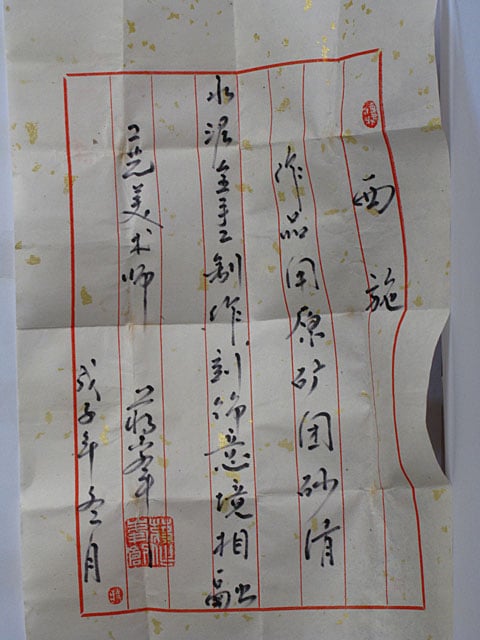 西施
作品用原矿团砂清
水泥全手工制作刻饰意境相融
工艺美术师 蒋
戊子年冬月